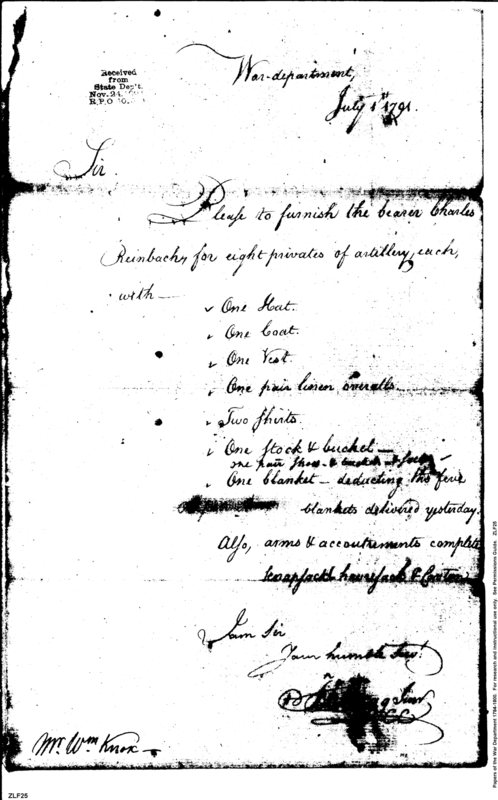 Received
from
State Dep't.
Nov. 24,
R.P.O
War-department,
July 1st 1791.
Sir.
Please to furnish the bearer Charles
Reinbach, for eight privates of artillery, each,
with —
One Hat.
One Coat.
One Vest.
One pair linen overalls
Two Shirts.
One Stock &
one pair Shoes &
One blanket — deducting the five
blankets delivered yesterday.
Also, arms & accoutrements complete
knapsack haversack & Canteen
I am Sir
Your humble Serv!
Mr. Wm Knox —
ZLF25
Papers of the War Department 1784-1800. For research and instructional use only. See Permissions Guide. ZLF25